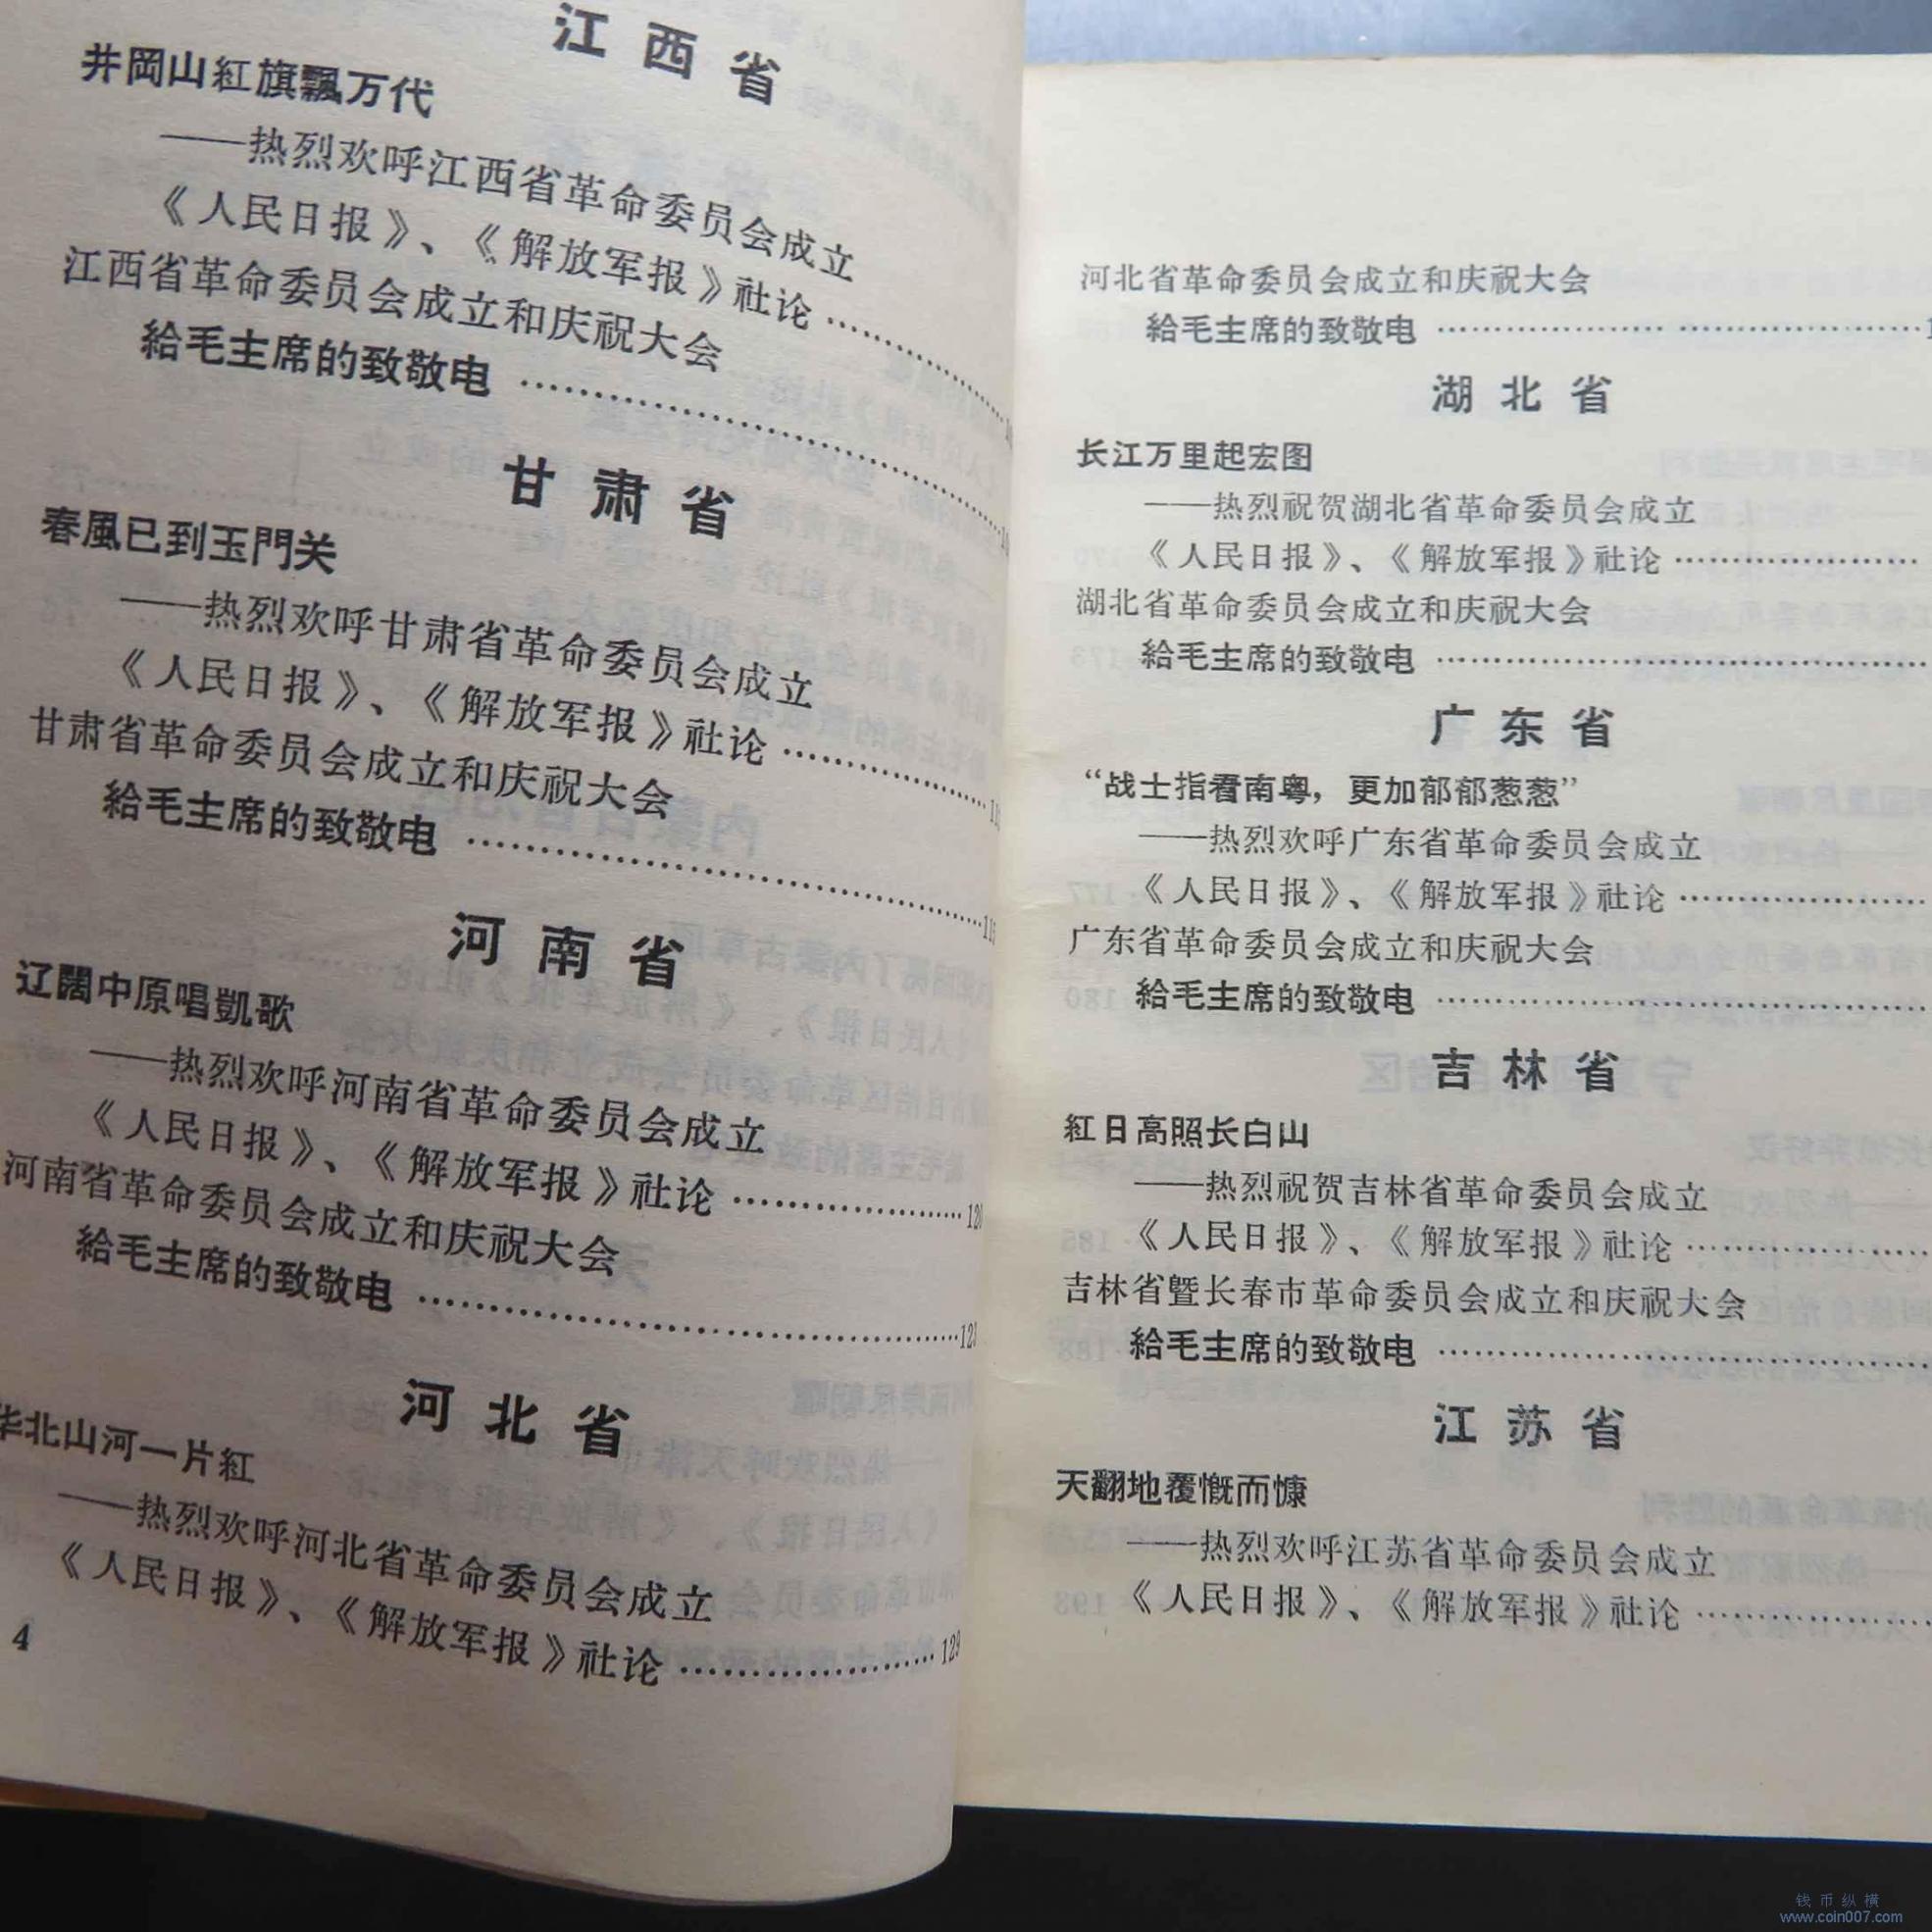 江西省
井岡山紅旗飄万代
——热烈欢呼江西省革命委员会成立
《人民日报》、《解放军报》社论
江西省革命委员会成立和庆祝大会
給毛主席的致敬电
甘肃省
春風已到玉門关
——热烈欢呼甘肃省革命委员会成立
《人民日报》、《解放军报》社论
甘肃省革命委员会成立和庆祝大会
給毛主席的致敬电
河南省
辽闊中原唱凱歌
——热烈欢呼河南省革命委员会成立
《人民日报》、《解放军报》社论
河南省革命委员会成立和庆祝大会
給毛主席的致敬电
河北省
华北山河一片紅
——热烈欢呼河北省革命委员会成立
《人民日报》、《解放军报》社论……………129
4
河北省革命委员会成立和庆祝大会
給毛主席的致敬电
湖北省
长江万里起宏图
——热烈祝贺湖北省革命委员会成立
《人民日报》、《解放军报》社论
湖北省革命委员会成立和庆祝大会
給毛主席的致敬电
广东省
“战士指看南粤，更加郁郁葱葱”
——热烈欢呼广东省革命委员会成立
《人民日报》、《解放军报》社论
广东省革命委员会成立和庆祝大会
給毛主席的致敬电
吉林省
紅日高照长白山
——热烈祝贺吉林省革命委员会成立
《人民日报》、《解放军报》社论
吉林省暨长春市革命委员会成立和庆祝大会
給毛主席的致敬电
江苏省
天翻地覆慨而慷
——热烈欢呼江苏省革命委员会成立
《人民日报》、《解放军报》社论
钱币纵横
www.coin007.com